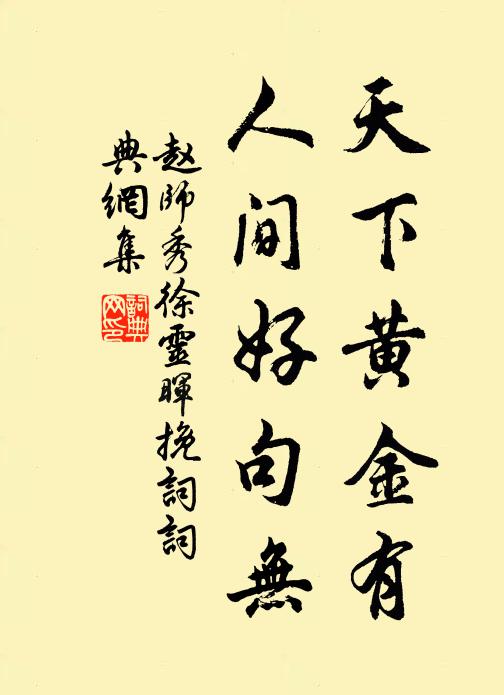 天下黄金有
人间好句無
赵師秀徐靈暉挽詞詞
典網集
詞典
网印